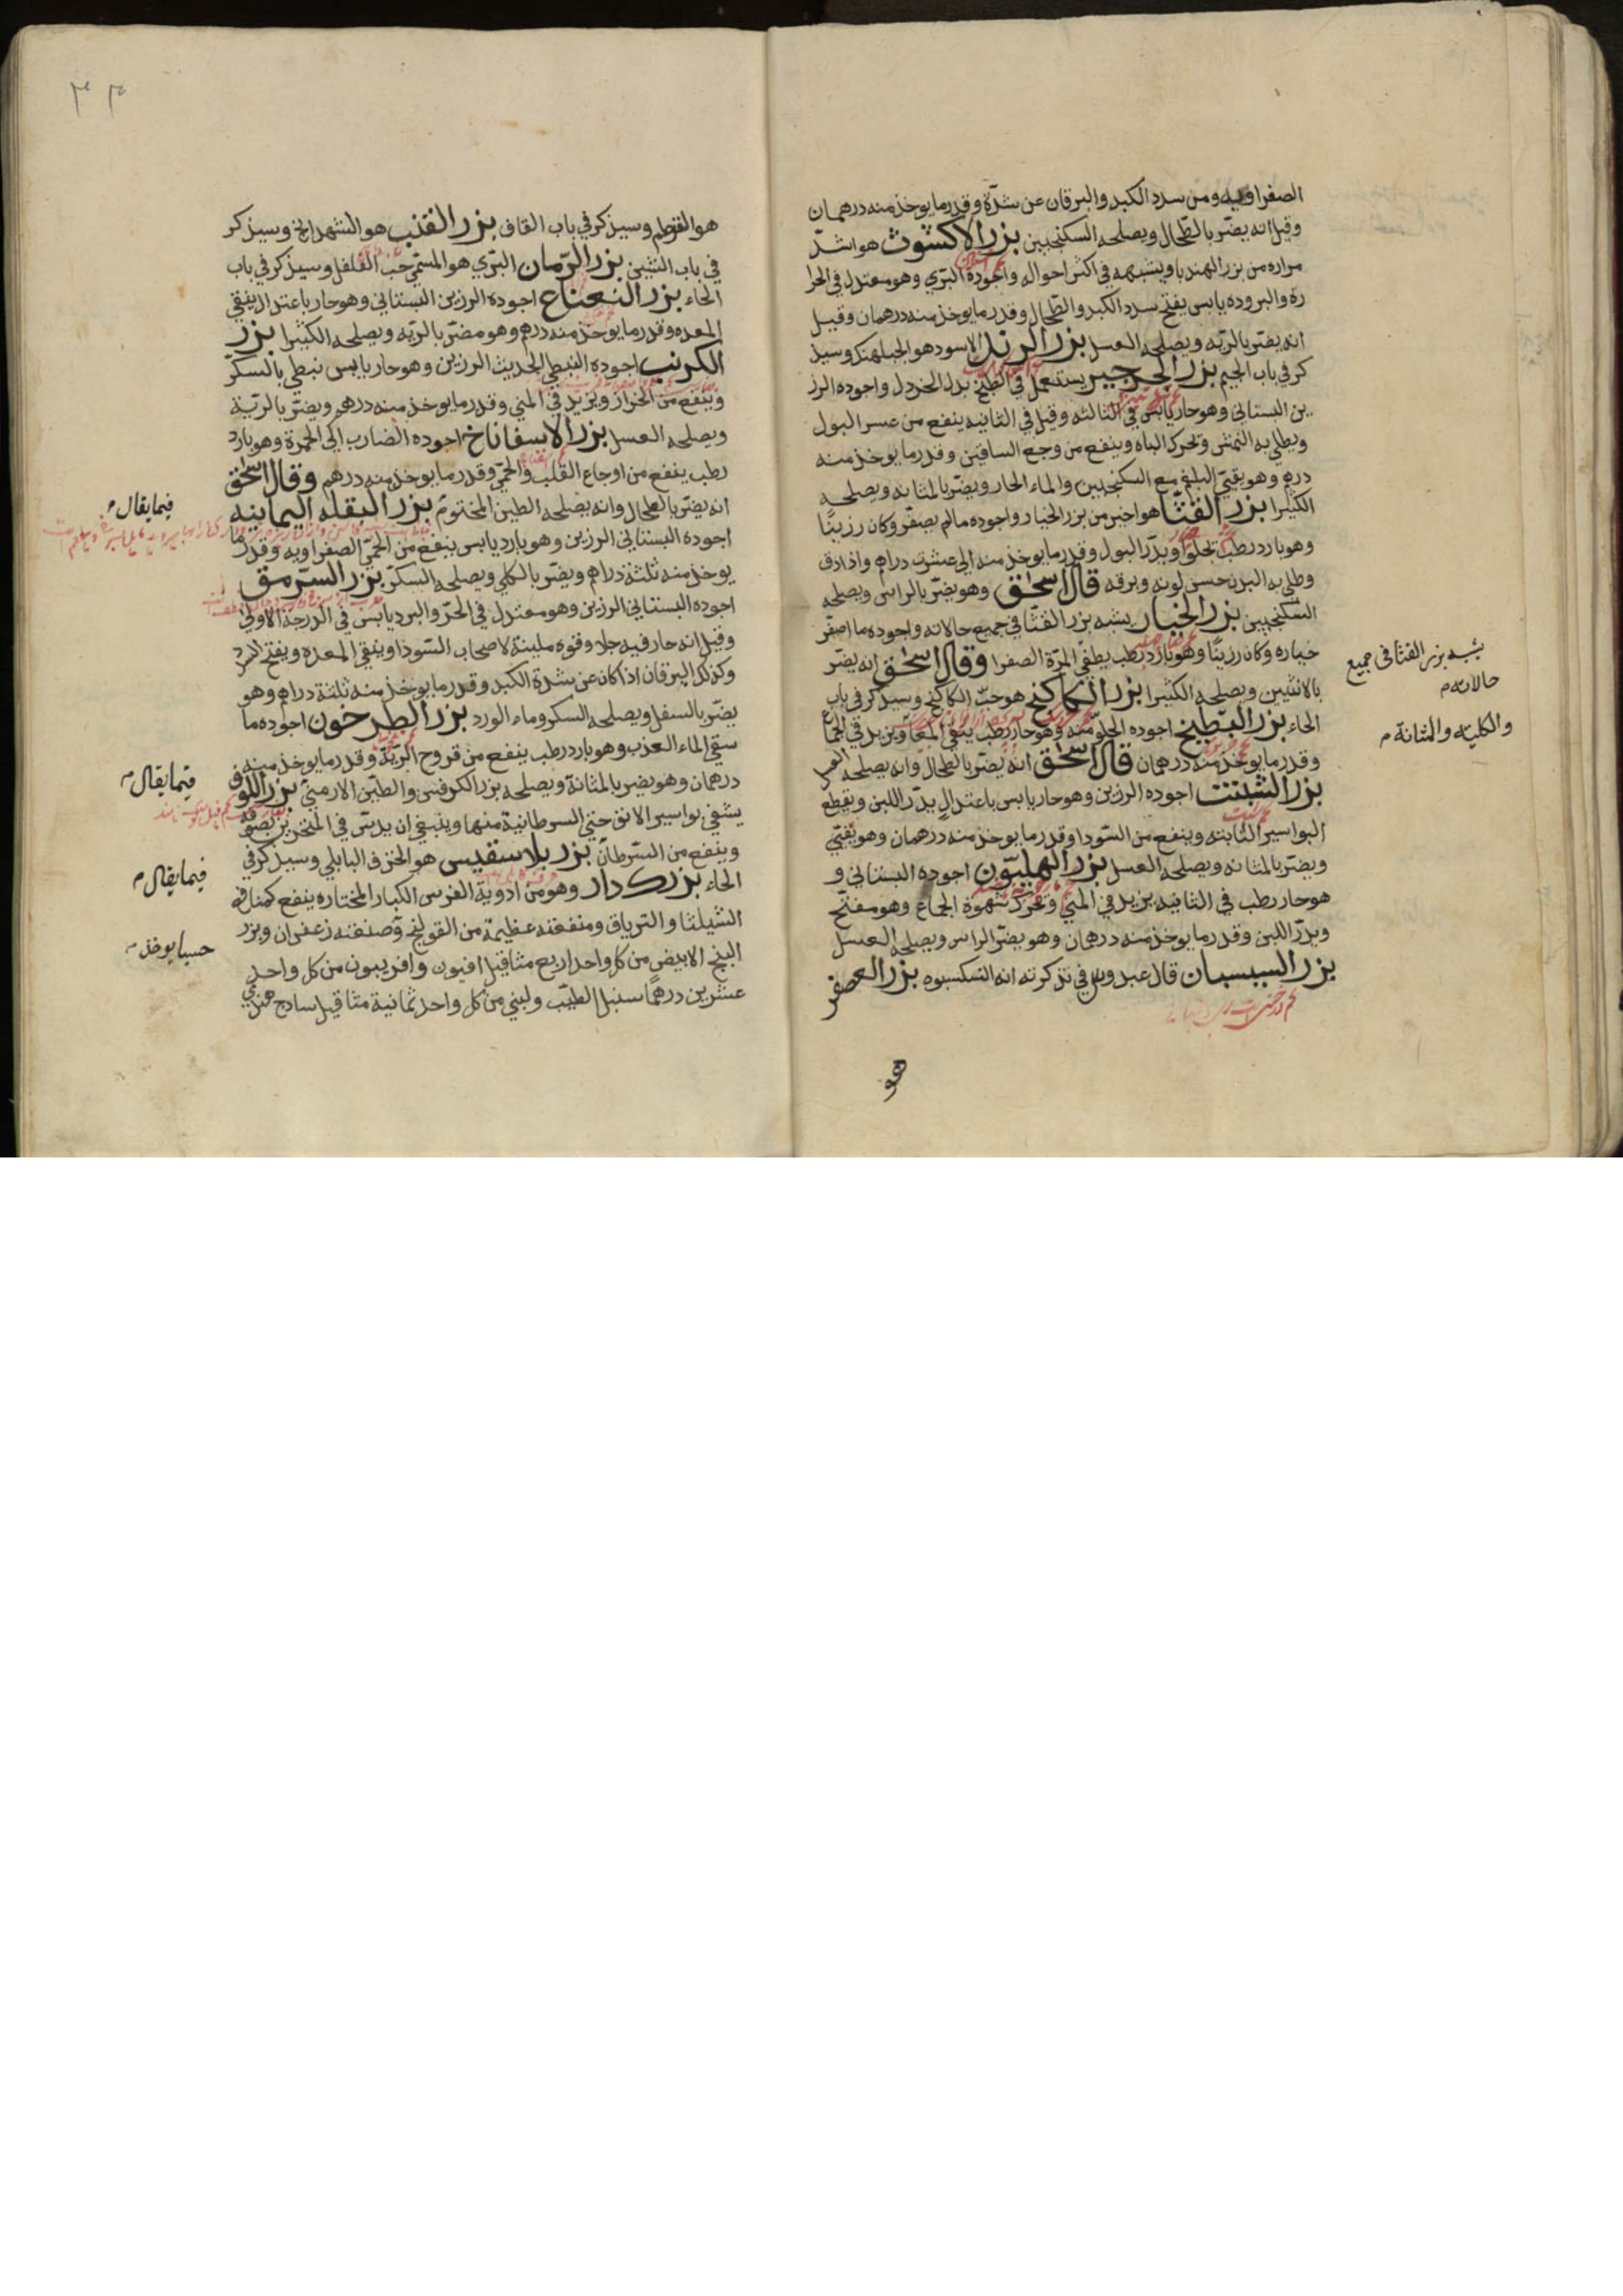 الصفراويه ومن سدد الكبد واليرقان عن سدّة وقدر ما يوخذ منه درهمان
وقيل انه يضرّ بالطّحال ويصلحه السكنجبين بزر الاكشوث هو اشدّ
مراره من بزر الهندبا ويشبهه في اكثر احواله واجوده البّري وهو معتدل في الحرا
رة والبروده يابس يفتح سدد الكبد والطّحال وقدر ما يوخذ منه درهمان وقيل
انه يضرّ بالريّه ويصلحه العسل بزر الرند الاسود هو الجبلهنك وسيذ
كر في باب الجيم بزر الجرجير يستعمل في الطبيخ بدل الخردل واجوده الرز
ين البستاني وهو حار يابس في الثالثه وقيل في الثانيه ينفع من عسر البول
ويطلي به النمش وتحرك الباه وينفع من وجع الساقين وقدر ما يوخذ منه
درهم وهو يقيّي البلغم مع السكنجبين والماء الحار ويضرّ بالمثانه ويصلحه
الكثيرا بزر القثّا هو اخير من بزر الخيار واجوده مالم يصفّر وكان رزينًا
وهو بارد رطب تجلو ويدرّ البول وقدر ما يوخذ منه الى عشرت دراهم واذا دق
وطلي به البدن حسن لونه وبرقه قال اسحٰق وهو يضرّ بالراس ويصلحه
السكنجبين بزر الخيار يشبه بزر القثّا في جميع حالاته واجوده ما اصفّر
خياره وكان رزينًا وهو بارد رطب يطفي المرّة الصفرا وقال اسحٰق انه يضرّ
بالانثيين ويصلحه الكثيرا بزر الكاكنج هو حبّ الكاكنج وسيذكر في باب
الحاء بزر البّطيخ اجوده الحلو منه وهو حار رطب ينقي المعا ويزيد في الجماع
وقدر ما يوخذ منه درهمان قال اسحٰق انه يضرّ بالطحال وانه يصلحه العسل
بزر الشبنت اجوده الرزين وهو حار يابس باعتدال يدّر اللبن ويقطع
البواسير الثابته وينفع من السّودا وقدر ما يوخذ منه درهمان وهو يقيّي
ويضرّ بالمثانه ويصلحه العسل بزر الهليّون اجوده البستاني و
هو حار رطب في الثانيه يزيد في المني وتحرك شهوة الجماع وهو مفتّح
ويدرّ اللبن وقدر ما يوخذ منه درهمان وهو يضرّ الراس ويصلحه العسل
بزر السيسبان قال عبدوس في تذكرته انه التسكسبوه بزر العصفر
هو
يشبه بزر القثّا في جميع
حالاته م
والكليته والمثانة م
٣٤
هو القرطم وسيذكر في باب القاف بزر القنب هو الشهدانج وسيذكر
في باب الشين بزر الرّمان البّري هو المسمّي حبّ القلقل وسيذكر في باب
الحاء بزر النعناع اجوده الرزين البستاني وهو حار باعتدال ينقي
المعده وقدر ما يوخذ منه درهم وهو مضرّ بالريّه ويصلحه الكثيرا بزر
الكرنب اجوده النبطي الحديث الرزين وهو حار يابس نبطي بالسكرّ
وينفع من الخزاز ويزيد في المني وقدر ما يوخذ منه درهم ويضرّ بالريّة
ويصلحه العسل بزر الاسفاناخ اجوده الضارب الى الحمرة وهو بارد
رطب ينفع من اوجاع القلب والحمّي وقدر ما يوخذ منه درهم وقال اسحٰق
انه يضرّ بالطحال وانه يصلحه الطين المختوم بزر البقله اليمانيه
اجوده البستاني الرزين وهو بارد يابس ينفع من الحمّي الصفراويه وقدر ما
يوخذ منه ثلثة دراهم ويضرّ بالكلي ويصلحه السكرّ بزر السّرمق
اجوده البستاني الرزين وهو معتدل في الحرّ والبرد يابس في الدرجة الاولى
وقيل انه حار فيه جلا وقوه ملينة لاصحاب السّودا وينقي المعده ويفتح السدد
وكذلك اليرقان اذا كان عن سدة الكبد وقدر ما يوخذ منه ثلثة دراهم وهو
يضرّ بالسفل ويصلحه السكر وماء الورد بزر الطرخون اجوده ما
سقي الماء العذب وهو بارد رطب ينفع من قروح الريّة وقدر ما يوخذ منه
درهمان وهو يضر بالمثانة ويصلحه بزر الكرفس والطّين الارمني بزر اللوف
يشفي بواسير الانف حتي السرطانية منها وينبغي ان يدسّ في المنخرين بصوفه
وينفع من السّرطان بزر بلاسقيس هو الحرف البابلي وسيذكر في
الحاء بزركدار وهو من ادوية الفرس الكبار المختاره ينفع كمنافع
الشيلثا والترياق ومنفعته عظيمة من القولنج وصنعته زعفران وبزر
البنج الابيض من كل واحد اربع مثاقيل افيون وافربيون من كل واحد
عشرين درهمًا سنبل الطيّب ولبني من كل واحد ثمانية مثاقيل سادج هندي
فيما يقال م
فيما يقال م
فيما يقال م
حسبما يوخذ م